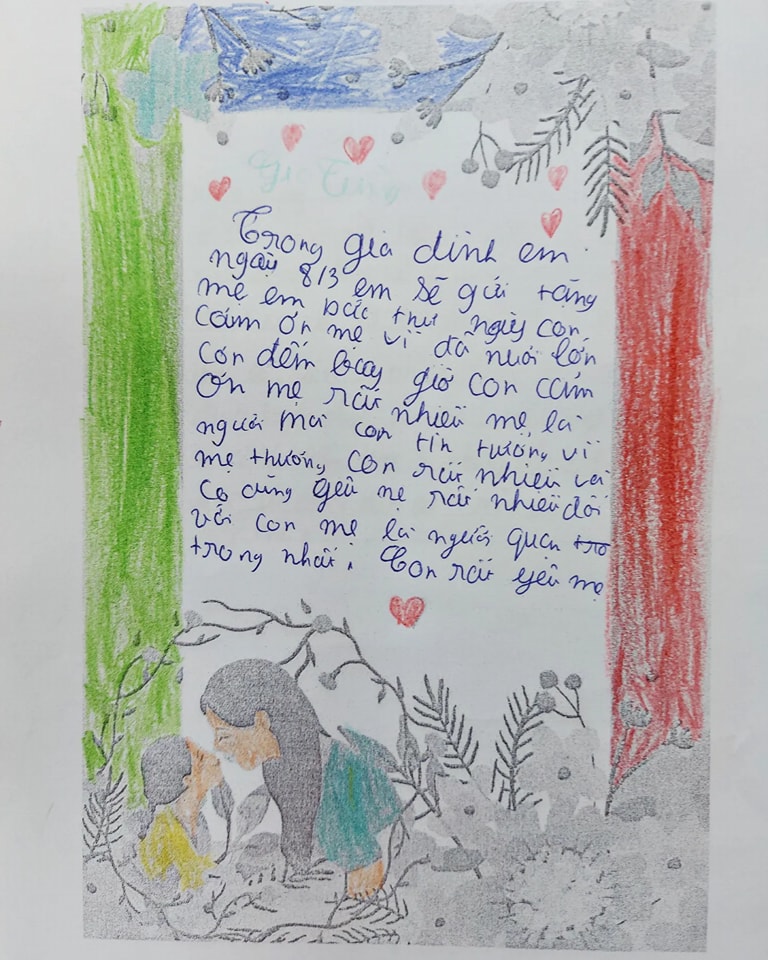 Gia Đình
Trong gia đình em
ngày 8/3 em sẽ gửi tặng
mẹ em bức thư này con
cám ơn mẹ vì đã nuôi lớn
con đến bây giờ con cám
ơn mẹ rất nhiều mẹ là
người mà con tin tưởng vì
mẹ thương con rất nhiều và
co cũng yêu mẹ rất nhiều đối
với con mẹ là người quan tro
trong nhất. Con rất yêu mẹ